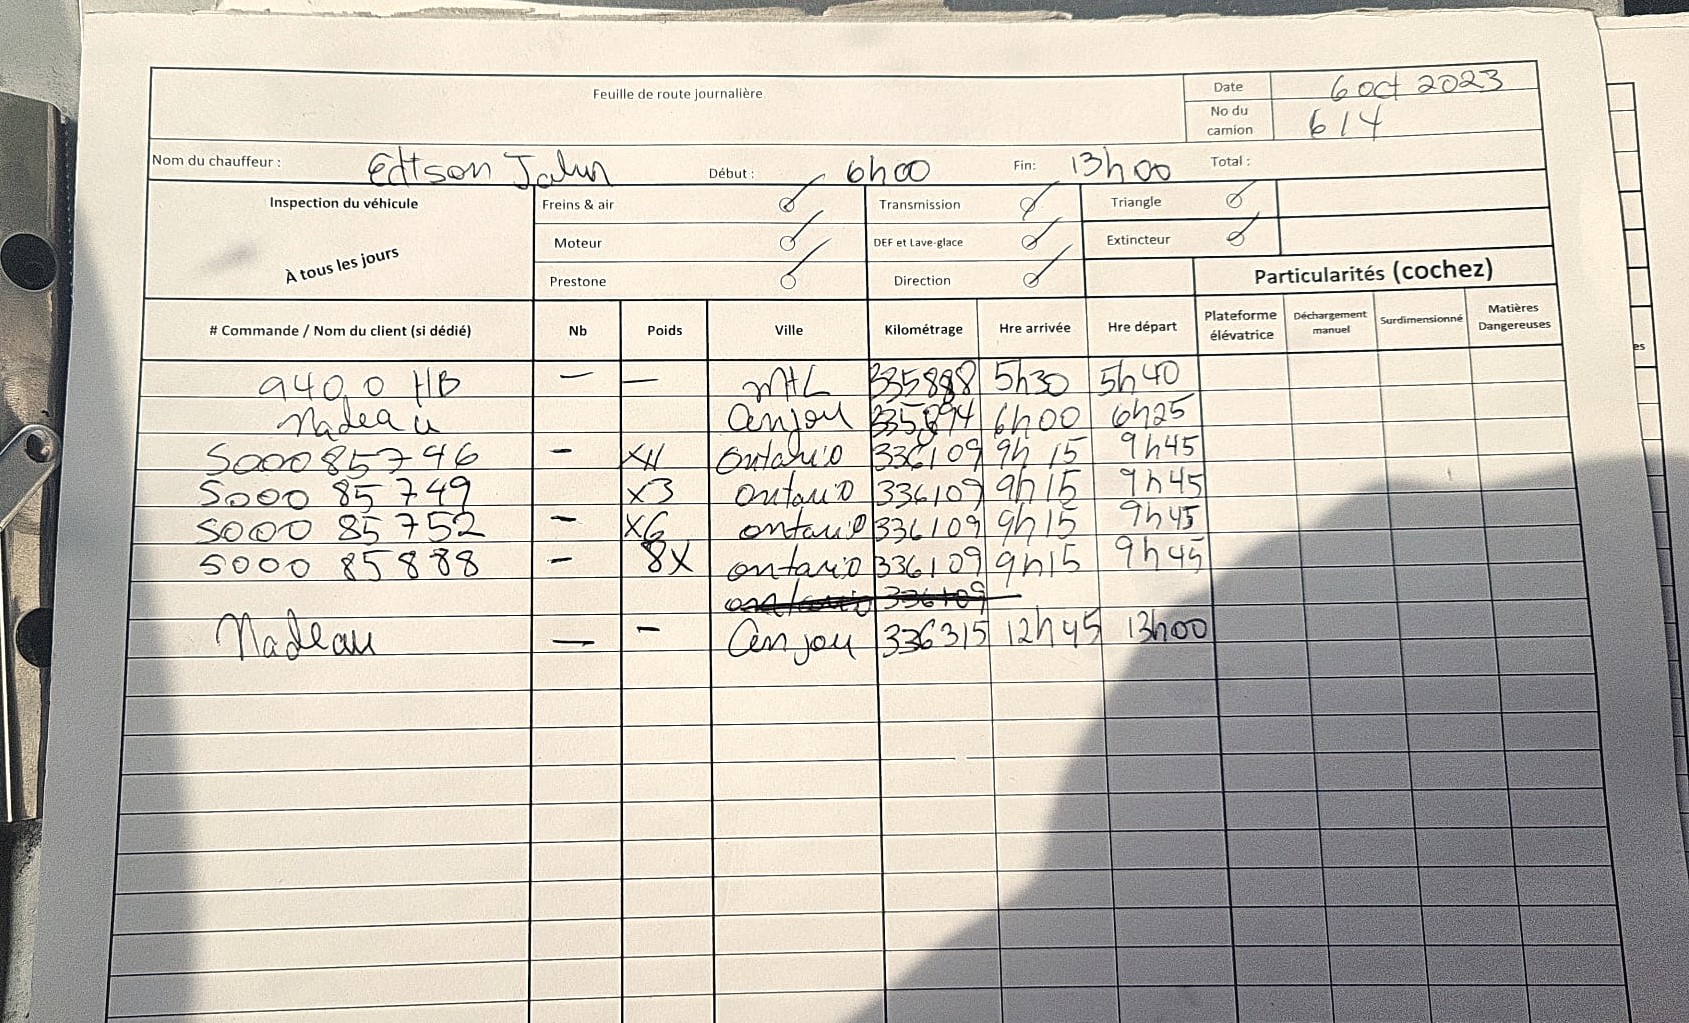 Feuille de route journalière
Date 6 oct 2023
No du camion 614
Nom du chauffeur : Edtson Début : 6h00 Fin: 13h00 Total :
Inspection du véhicule Freins & air Transmission Triangle
À tous les jours Moteur DEF et Lave-glace Extincteur
Prestone Direction Particularités (cochez)
# Commande / Nom du client (si dédié) Nb Poids Ville Kilométrage Hre arrivée Hre départ Plateforme élévatrice Déchargement manuel Surdimensionné Matières Dangereuses
940,0 HB — — MtL 335888 5h30 5h40
Nadeau Anjou 335894 6h00 6h25
5000 85746 - Ontario 336109 9h15 9h45
5000 85749 x3 Ontario 336109 9h15 9h45
5000 85752 - x6 ontario 336109 9h15 9h45
5000 85888 - 8x ontario 336109 9h15 9h45
ontario 336109
Nadeau — - Anjou 336315 12h45 13h00
es